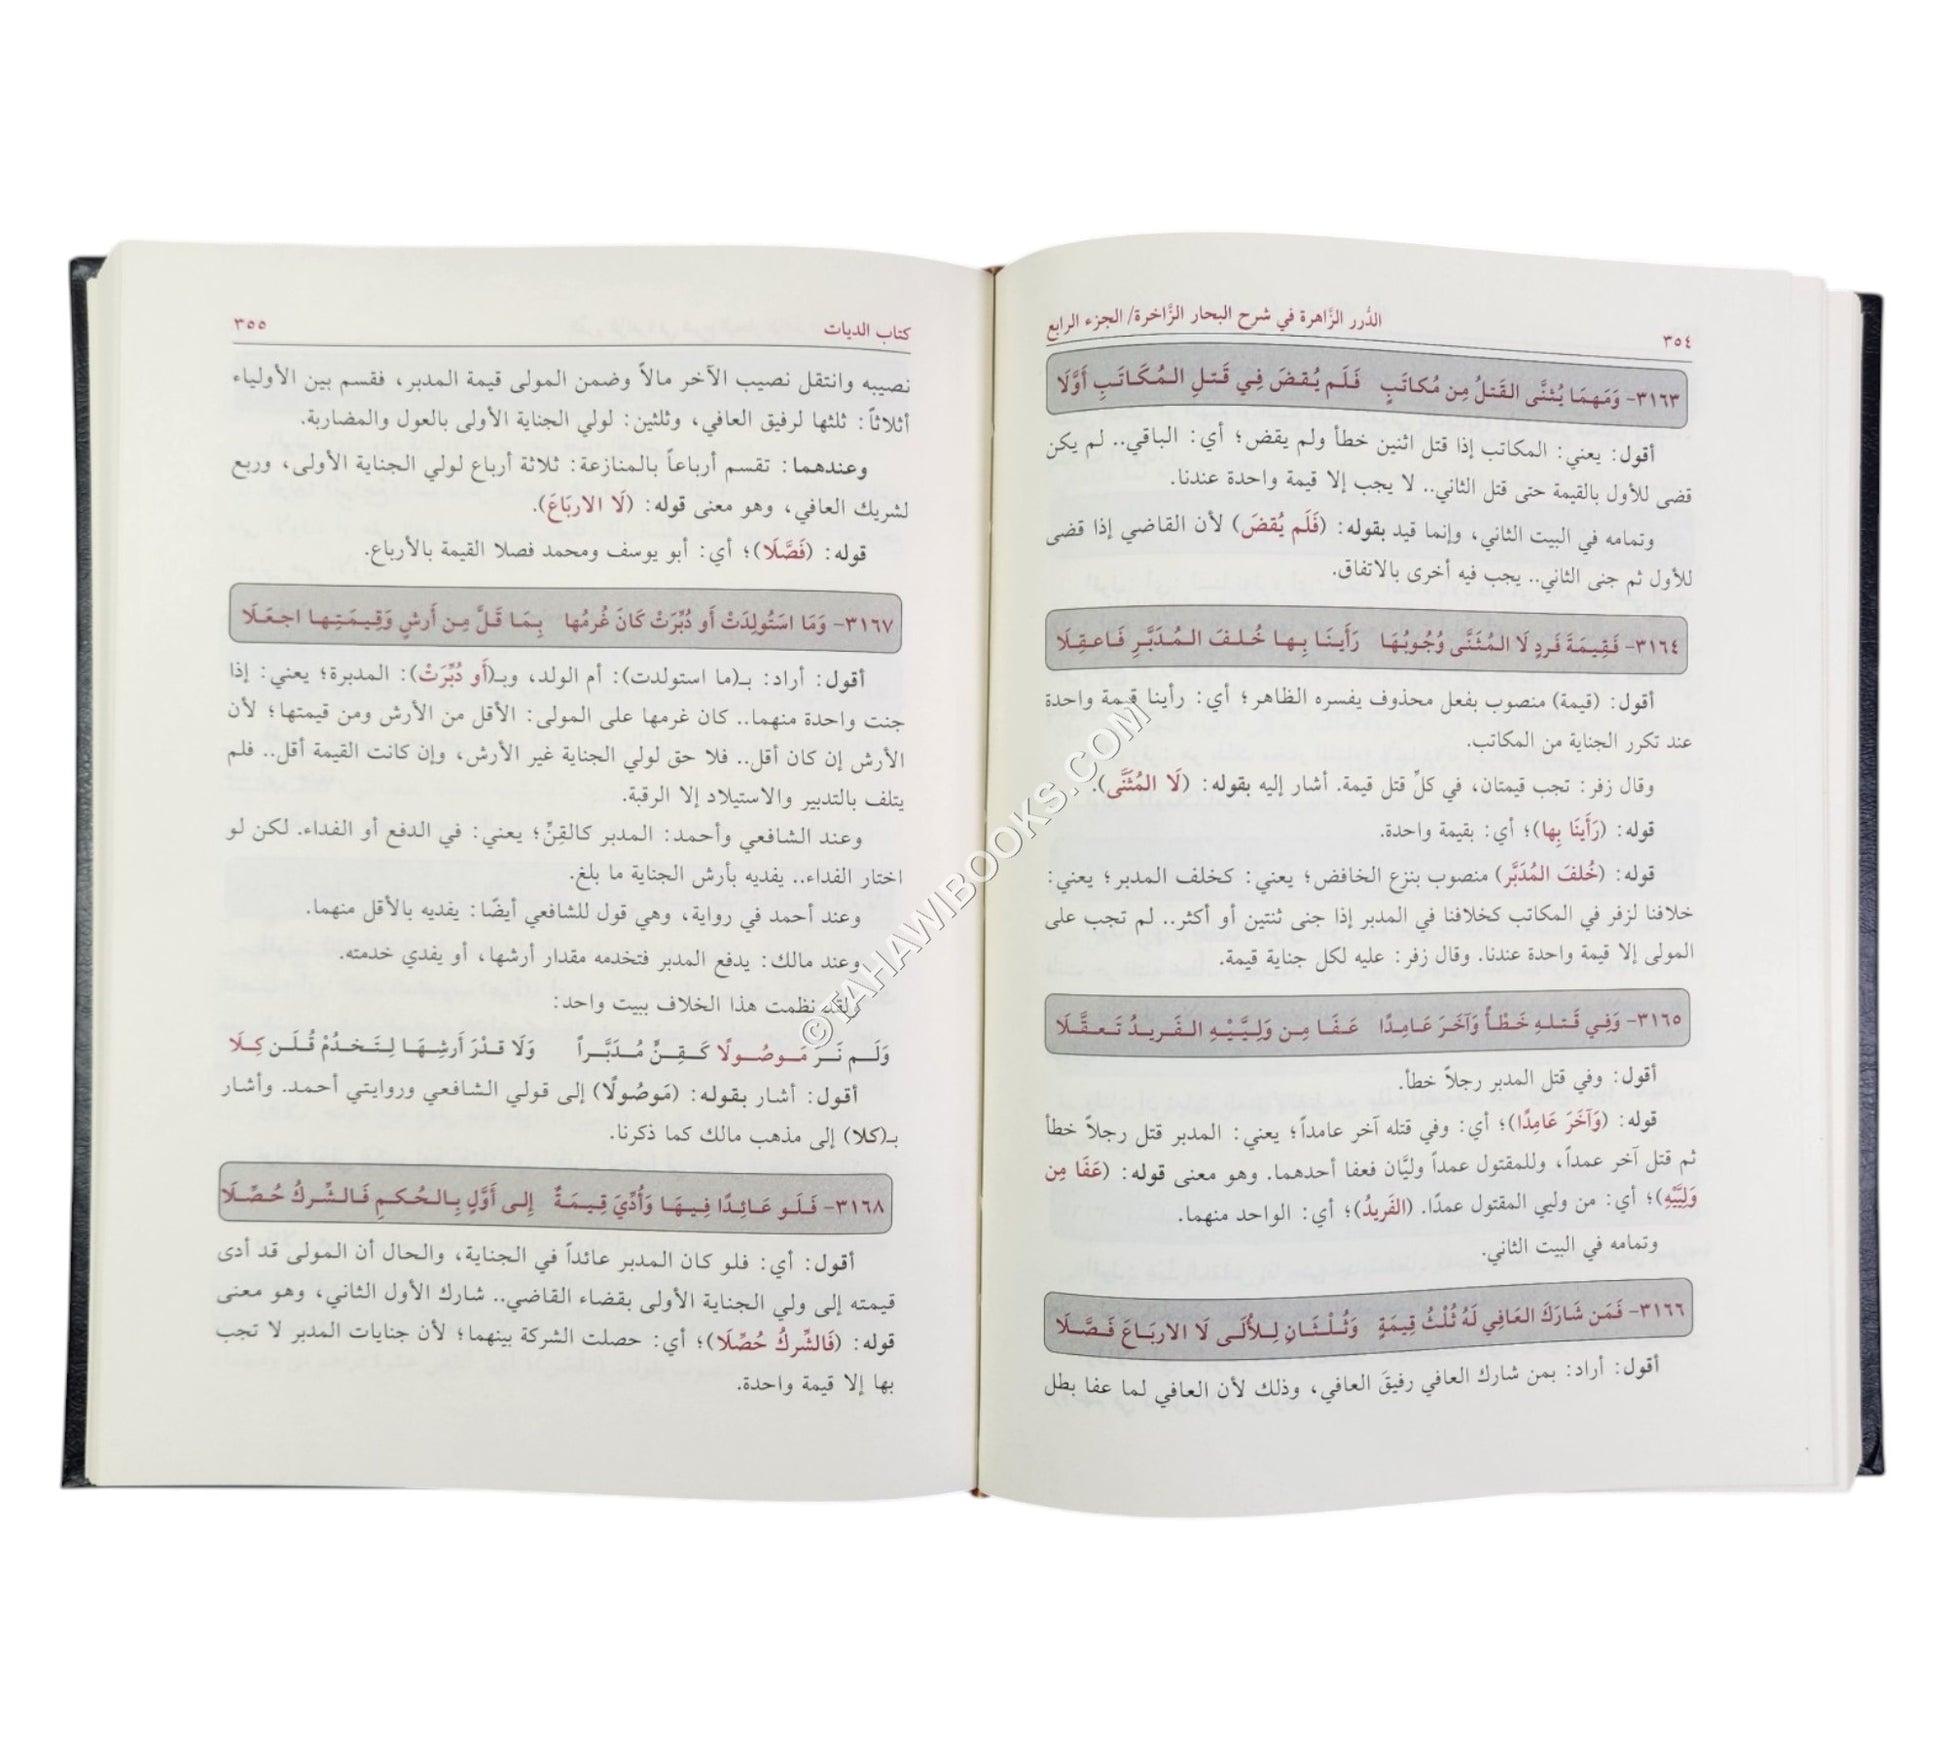 ٣٥٤ الدُّرر الزَّاهرة في شرح البحار الزَّاخرة/ الجزء الرابع
٣١٦٣- وَمَهمَا يُثنَّى القَتلُ مِن مُكاتَبٍ فَلَم يُقضَ فِي قَتلِ المُكَاتَبِ أَوَّلَا
أقول: يعني: المكاتب إذا قتل اثنين خطأ ولم يقض؛ أي: الباقي.. لم يكن
قضى للأول بالقيمة حتى قتل الثاني.. لا يجب إلا قيمة واحدة عندنا.
وتمامه في البيت الثاني، وإنما قيد بقوله: (فَلَم يُقضَ) لأن القاضي إذا قضى
للأول ثم جنى الثاني.. يجب فيه أخرى بالاتفاق.
٣١٦٤- فَقِيمَةَ فَردٍ لَا المُثَنَّى وُجُوبُهَا رَأَينَا بِها خُلفَ المُدَبَّرِ فَاعقِلَا
أقول: (قيمة) منصوب بفعل محذوف يفسره الظاهر؛ أي: رأينا قيمة واحدة
عند تكرر الجناية من المكاتب.
وقال زفر: تجب قيمتان، في كلِّ قتل قيمة. أشار إليه بقوله: (لَا المُثَنَّى).
قوله: (رَأَينَا بِها)؛ أي: بقيمة واحدة.
قوله: (خُلفَ المُدَبَّر) منصوب بنزع الخافض؛ يعني: كخلف المدبر؛ يعني:
خلافنا لزفر في المكاتب كخلافنا في المدبر إذا جنى ثنتين أو أكثر.. لم تجب على
المولى إلا قيمة واحدة عندنا. وقال زفر: عليه لكل جناية قيمة.
٣١٦٥- وَفِي قَتلهِ خَطْأً وَآخَرَ عَامِدًا عَفَا مِن وَلِيَّيْهِ الفَرِيدُ تَعقَّلَا
أقول: وفي قتل المدبر رجلاً خطأ.
قوله: (وَآخَرَ عَامِدًا)؛ أي: وفي قتله آخر عامداً؛ يعني: المدبر قتل رجلاً خطأ
ثم قتل آخر عمداً، وللمقتول عمداً وليَّان فعفا أحدهما. وهو معنى قوله: (عَفَا مِن
وَلِيَّيْهِ)؛ أي: من وليي المقتول عمدًا. (الفَرِيدُ)؛ أي: الواحد منهما.
وتمامه في البيت الثاني.
٣١٦٦- فَمَن شَارَكَ العَافِي لَهُ ثُلْثُ قِيمَةٍ وَثُلْثَانِ لِلأُلَى لَا الارباعَ فَصَّلَا
أقول: أراد: بمن شارك العافي رفيقَ العافي، وذلك لأن العافي لما عفا بطل
كتاب الديات ٣٥٥
نصيبه وانتقل نصيب الآخر مالاً وضمن المولى قيمة المدبر، فقسم بين الأولياء
أثلاثاً: ثلثها لرفيق العافي، وثلثين: لولي الجناية الأولى بالعول والمضاربة.
وعندهما: تقسم أرباعاً بالمنازعة: ثلاثة أرباع لولي الجناية الأولى، وربع
لشريك العافي، وهو معنى قوله: (لَا الاربَاعَ).
قوله: (فَصَّلَا)؛ أي: أبو يوسف ومحمد فصلا القيمة بالأرباع.
٣١٦٧- وَمَا استُولِدَتْ أَو دُبِّرَتْ كَانَ غُرمُها بِمَا قَلَّ مِن أَرشٍ وَقِيمَتِها اجعَلَا
أقول: أراد: بـ(ما استولدت): أم الولد، وبـ(أَو دُبِّرَتْ): المدبرة؛ يعني: إذا
جنت واحدة منهما.. كان غرمها على المولى: الأقل من الأرش ومن قيمتها؛ لأن
الأرش إن كان أقل.. فلا حق لولي الجناية غير الأرش، وإن كانت القيمة أقل.. فلم
يتلف بالتدبير والاستيلاد إلا الرقبة.
وعند الشافعي وأحمد: المدبر كالقِنِّ؛ يعني: في الدفع أو الفداء. لكن لو
اختار الفداء.. يفديه بأرش الجناية ما بلغ.
وعند أحمد في رواية، وهي قول للشافعي أيضًا: يفديه بالأقل منهما.
وعند مالك: يدفع المدبر فتخدمه مقدار أرشها، أو يفدي خدمته.
ولقد نظمت هذا الخلاف ببيت واحد:
وَلَم نَر مَوصُولًا كَقِنٍّ مُدَبَّراً وَلَا قدْرَ أَرشِهَا لِتَخدُمْ قُلَن كِلَا
أقول: أشار بقوله: (مَوصُولًا) إلى قولي الشافعي وروايتي أحمد. وأشار
بـ(كلا) إلى مذهب مالك كما ذكرنا.
٣١٦٨- فَلَو عَائِدًا فِيهَا وَأُدِّيَ قِيمَةٌ إِلى أَوَّلٍ بِالحُكمِ فَالشِّركُ حُصِّلَا
أقول: أي: فلو كان المدبر عائداً في الجناية، والحال أن المولى قد أدى
قيمته إلى ولي الجناية الأولى بقضاء القاضي.. شارك الأول الثاني، وهو معنى
قوله: (فَالشِّركُ حُصِّلَا)؛ أي: حصلت الشركة بينهما؛ لأن جنايات المدبر لا تجب
بها إلا قيمة واحدة.
© TAHAWIBOOKS.COM